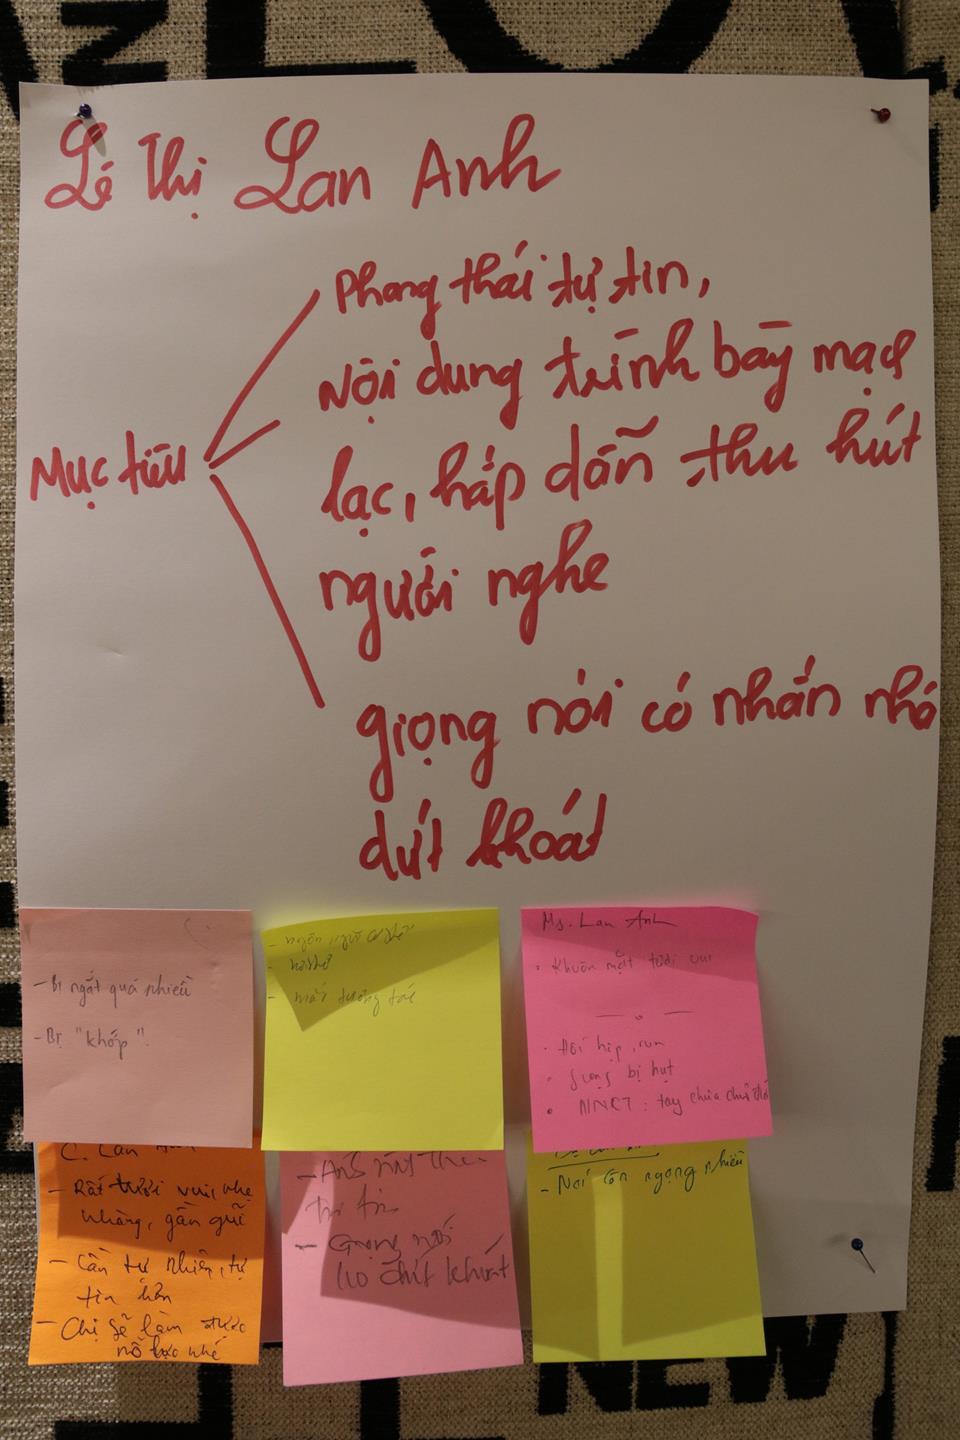 Lê Thị Lan Anh
Phong thái tự tin,
Mục tiêu
Nội dung trình bày mạch
lạc, hấp dẫn thu hút
người nghe
giọng nói có nhấn nhá
dứt khoát
- Bị ngắt quá nhiều
- Bị "khớp".
- ngôn ngữ cơ thể
- mất tương tác
Ms. Lan Anh
• Khuôn mặt tươi vui
• Hồi hộp, run
• giọng bị hụt
• NNCT: tay chưa
C. Lan Anh
- Rất tươi vui, nhẹ
nhàng, gần gũi
- Cần tự nhiên, tự
tin hơn
- Chị sẽ làm được
nỗ lực nhé
- Ánh mắt
tự tin
- Giọng nói
dứt khoát
- Nói còn ngọng nhiều
NEW